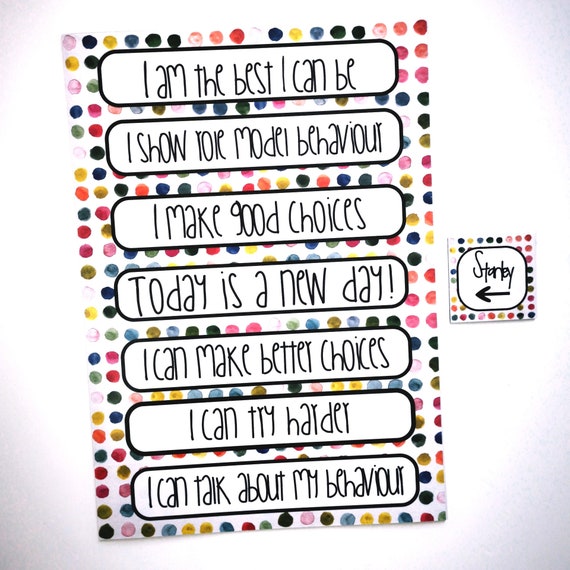 I am the best I can be
I show role model behaviour
I make good choices
Today is a new day!
I can make better choices
I can try harder
I can talk about my behaviour
Stanley